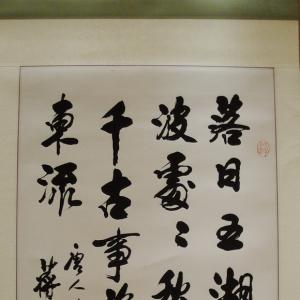 落日五湖
波處〻
千古事
東流
唐人